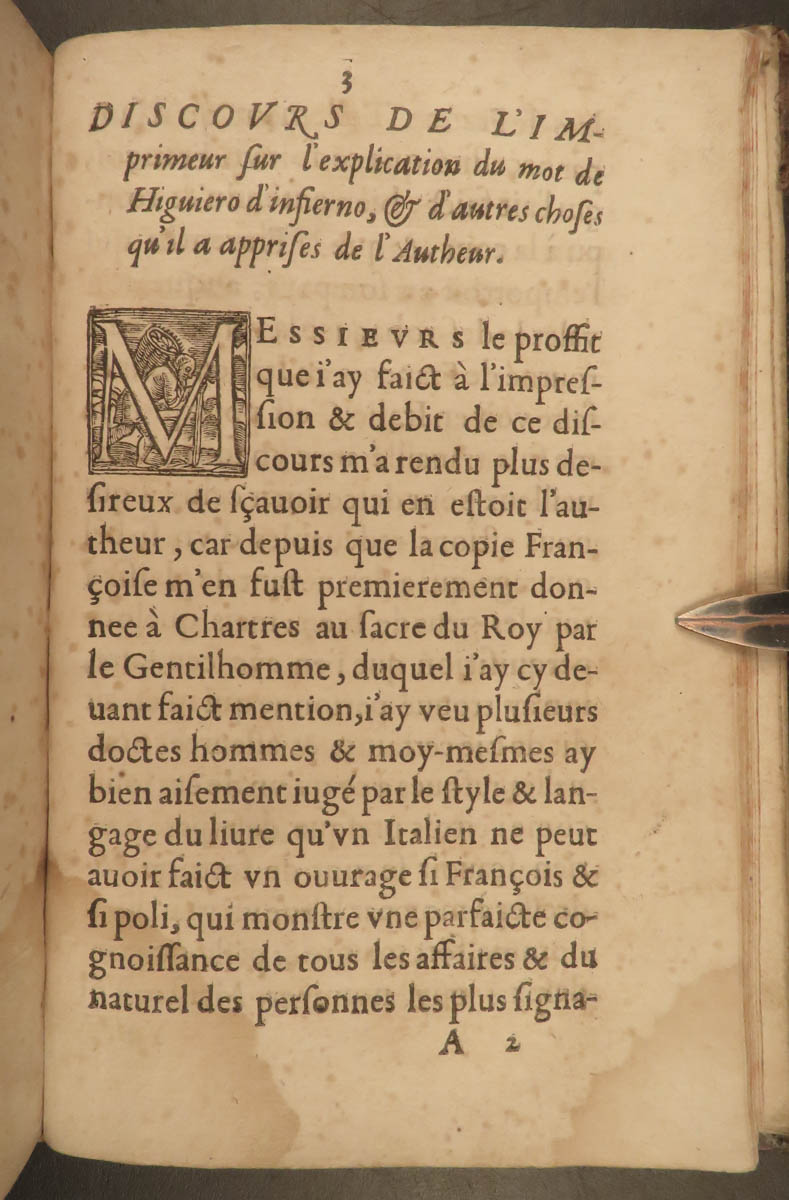 3
DISCOVRS DE L'IM-
primeur ſur l'explication du mot de
Higuiero d'infierno, & d'autres choſes
qu'il a appriſes de l'Autheur.
MESSIEVRS le proffit
que i'ay faict à l'impreſ-
ſion & debit de ce diſ-
cours m'a rendu plus de-
ſireux de ſçauoir qui en eſtoit l'au-
theur, car depuis que la copie Fran-
çoiſe m'en fuſt premierement don-
nee à Chartres au ſacre du Roy par
le Gentilhomme, duquel i'ay cy de-
uant faict mention, i'ay veu pluſieurs
doctes hommes & moy-meſmes ay
bien aiſement iugé par le ſtyle & lan-
gage du liure qu'vn Italien ne peut
auoir faict vn ouurage ſi François &
ſi poli, qui monſtre vne parfaicte co-
gnoiſſance de tous les affaires & du
naturel des perſonnes les plus ſigna-
A 2